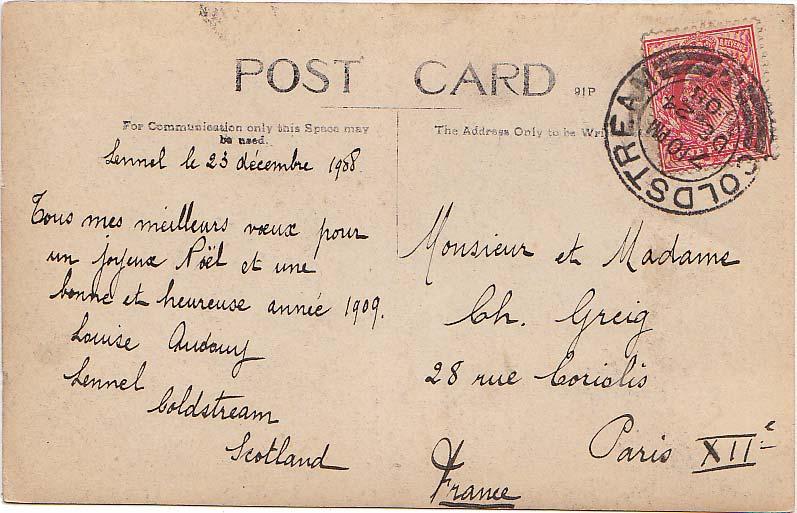 POST CARD
91P
For Communication only this Space may
be used.
The Address Only to be
COLDSTREAM
Lennel le 23 décembre 1908
Tous mes meilleurs vœux pour
un joyeux Noël et une
bonne et heureuse année 1909.
Louise Audouy
Lennel
Coldstream
Scotland
Monsieur et Madame
Ch. Greig
28 rue Coriolis
Paris XIIe
France